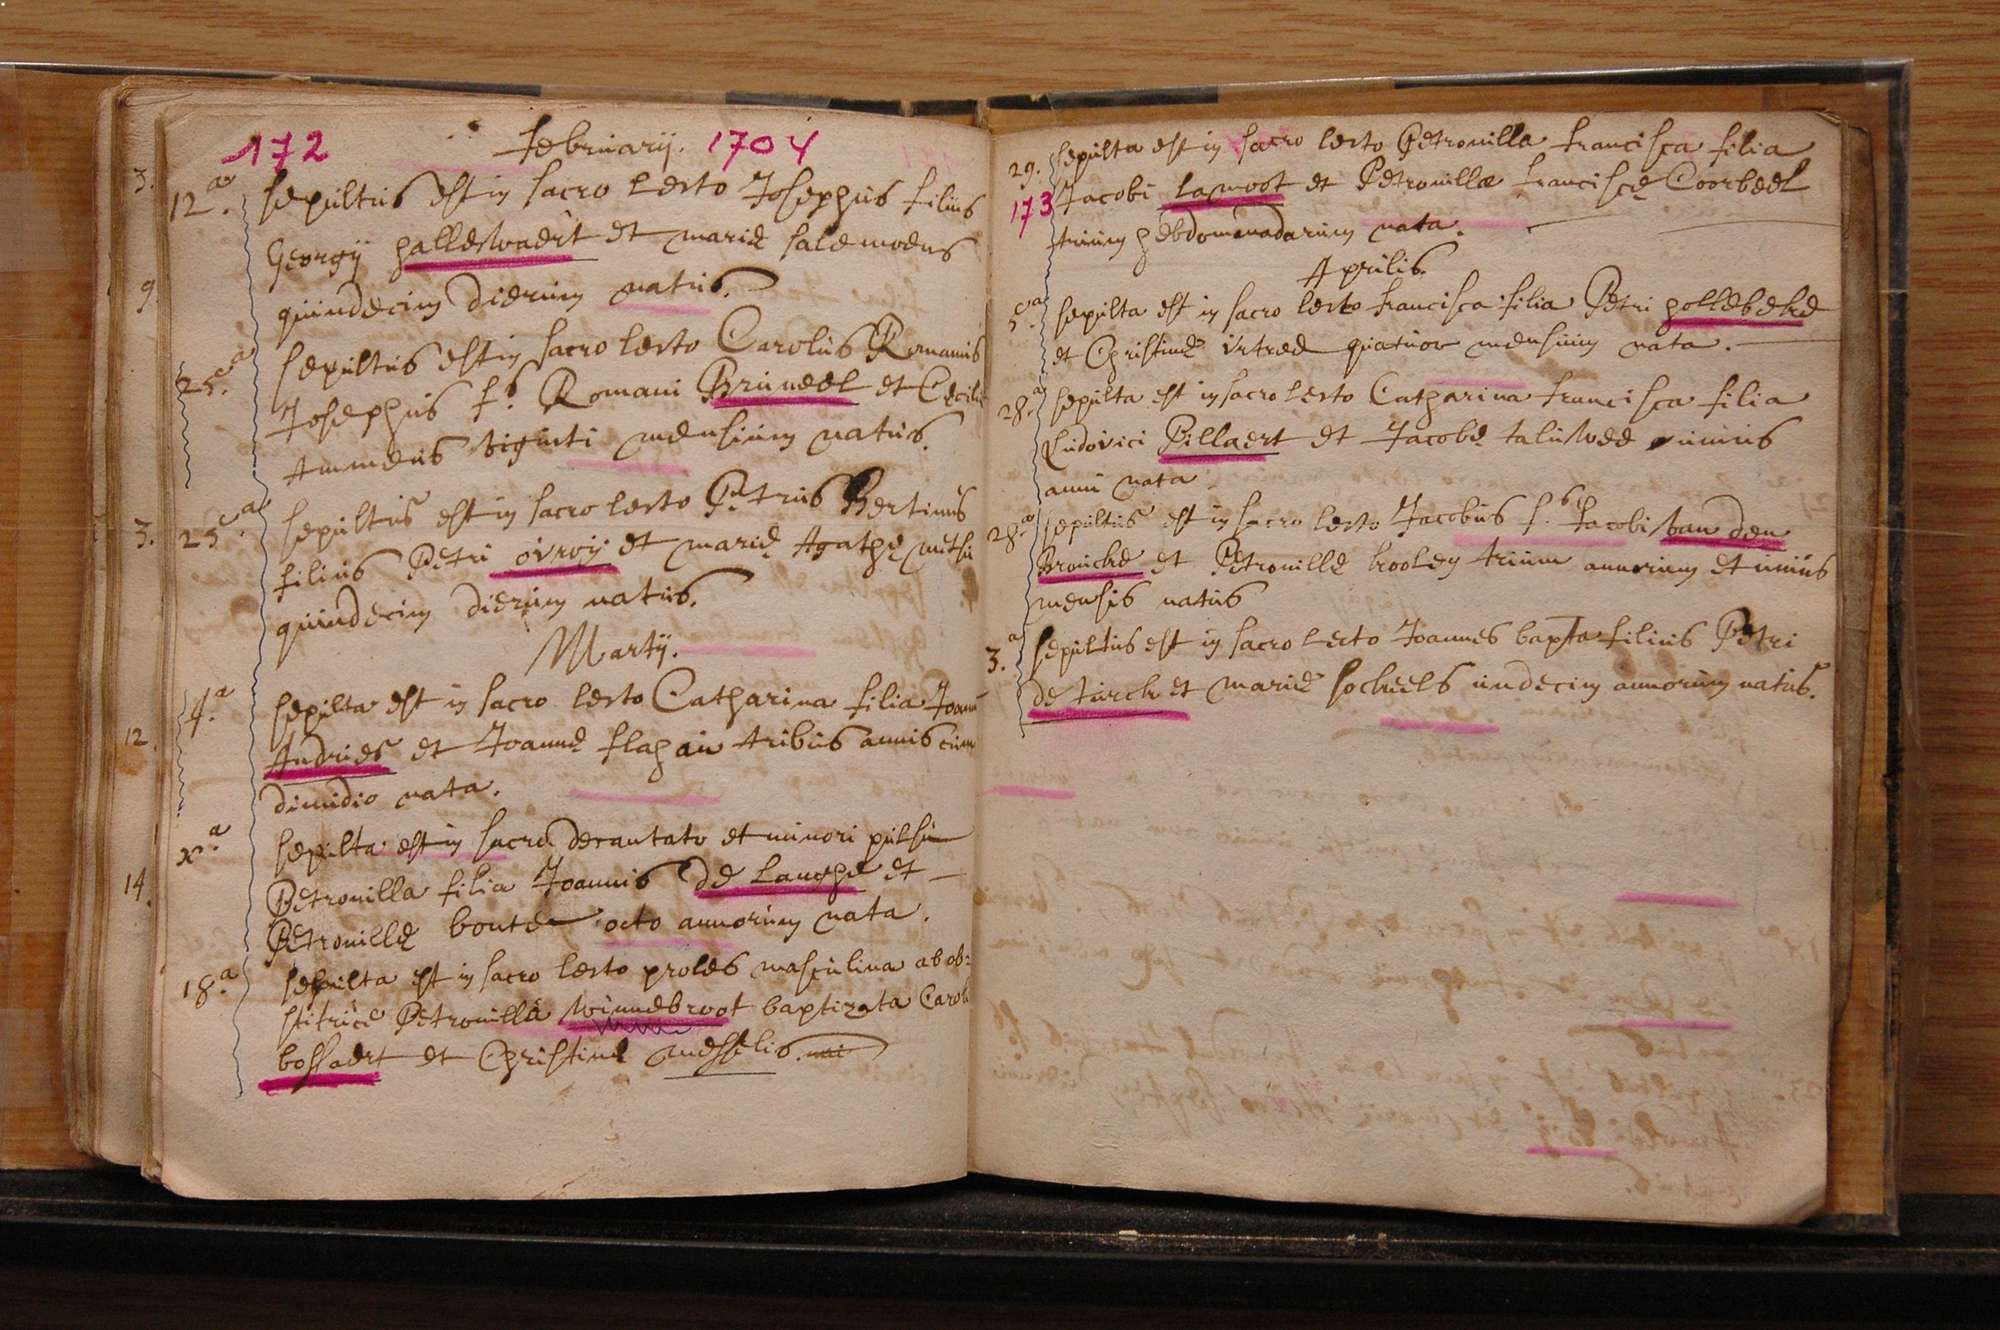 172 februarij. 1704
3.
12.a sepultus est in sacro lecto Josephus filius
Georgij hallewaert et mariæ salemoens
9
quindecim dierum natus.
25.a sepultus est in sacro lecto Carolus Romanus
Josephus fs Romani Bruneel et Cecilię
Ammeus viginti mensium natus.
3.
25.a sepultus est in sacro lecto Petrus Bertinus
filius Petri ovroij et marię Agathę
quindecim dierum natus.
Martij.
4.a sepulta est in sacro lecto Catharina filia Joannis
12.
Andries et Joannę flahau tribus annis cum
dimidio nata.
xa sepulta est in sacro decantato et minori pulsu
14.
Petronilla filia Joannis de Langhe et
Petronillę bonte octo annorum nata.
18.a sepulta est in sacro lecto proles masculina ab ob=
stitrice Petronilla winnebroot baptizata Caroli
bossaert et Christinę
29. sepulta est in sacro lecto Petronilla francisca filia
173 Jacobi Lamoot et Petronillæ franciscę Coorbeel
trium hebdomadarum nata.
Aprilis.
5.a sepulta est in sacro lecto francisca filia Petri hollebeke
et Christinę quatuor mensium nata.
28.a sepulta est in sacro lecto Catharina francisca filia
Ludovici Pillaert et Jacobę unius
anni nata.
28.a sepultus est in sacro lecto Jacobus fs Jacobi van den
Broucke et Petronillę trium annorum et unius
mensis natus
3.a sepultus est in sacro lecto Joannes bapta filius Petri
de turck et marię sockeels undecim annorum natus.